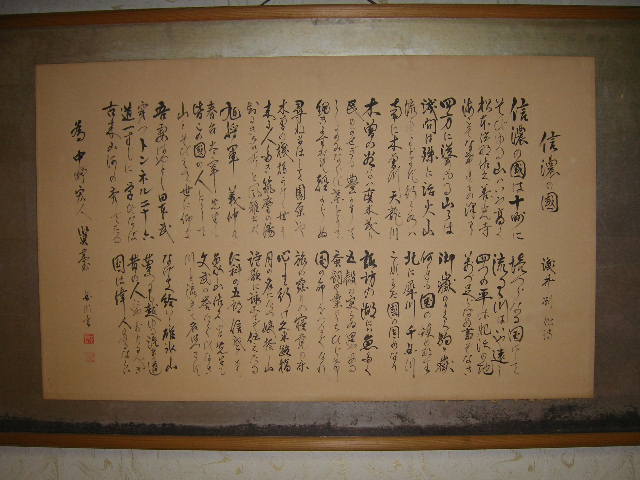 信濃の國
浅井 洌 作詩
信濃の國は十州に 境つらなる国にして
そびゆる山はいや高く 流るゝ川はいや遠し
松本伊那佐久善光寺 四つの平は肥沃の地
海こそなけれ物さわに 万足らわぬ事ぞなき
四方に聳ゆる山々は 御嶽乗鞍駒嶽
浅間は殊に活火山 何れも國の鎮めなり
流れ淀まずゆく水は 北に犀川千曲川
南に木曽川天龍川 これまた國の固めなり
木曽の谷には真木茂り 諏訪の湖には魚多く
民のかせぎも豊かにて 五穀の実らぬ里やある
しかのみならず桑とりて 蚕飼の業の打ちひらけ
細きよすがも軽からぬ 国の命を繋ぐなり
尋ねまほしき園原や 旅の宿りの寝覚の床
木曽の桟かけし世も 心して行け久米路橋
来る人多き筑摩の湯 月の名に立つ姨捨山
しるき名所と風雅士が 詩歌に詠てぞ伝へたる
旭将軍義仲も 仁科の五郎信盛も
春台太宰先生も 象山佐久間先生も
皆この國の人にして 文武の誉たぐひなく
山と聳えて世に仰ぎ 川と流れて名は尽ず
吾妻はやとし日本武 なげき給ひし碓氷山
穿つトンネル二十六 夢にも越ゆる汽車の道
道一すじに学びなば 昔の人にや劣るべき
古来山河の秀でたる 国は偉人のある習ひ
為 中